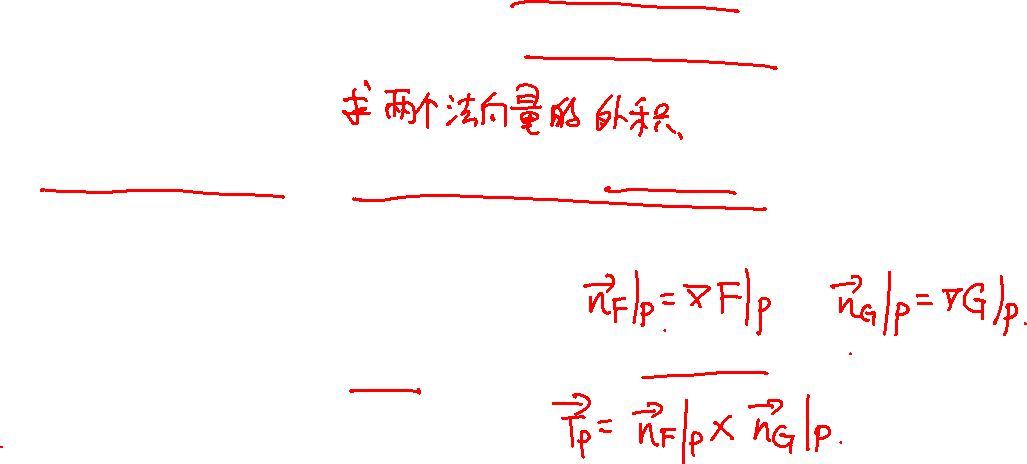 求两个法向量的外积、
$\vec{n}_F|_P = \nabla F|_P$ $\vec{n}_G|_P = \nabla G|_P.$
$\vec{T}_P = \vec{n}_F|_P \times \vec{n}_G|_P.$